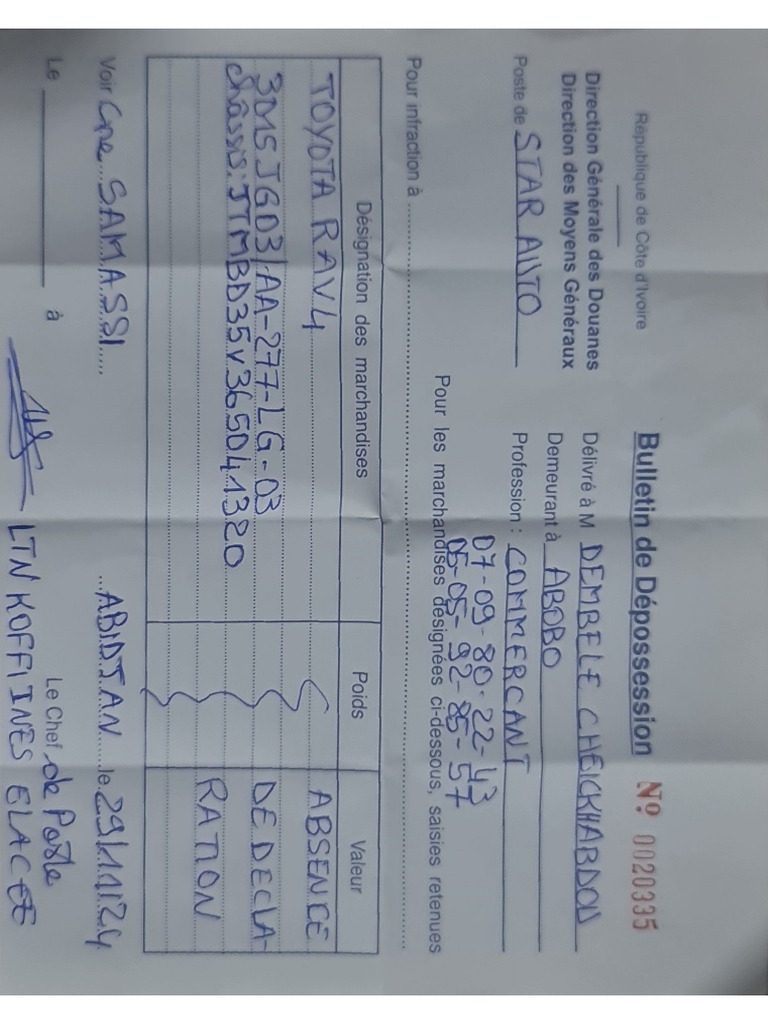 République de Côte d'Ivoire
Direction Générale des Douanes
Direction des Moyens Généraux
Poste de STAR AUTO
Bulletin de Dépossession Nº 0020335
Délivré à M DEMBELE CHEICKHABDOU
Demeurant à ABOBO
Profession : COMMERCANT
07-09-80-22-43
05-05-92-85-57
Pour les marchandises désignées ci-dessous, saisies retenues
Pour infraction à
Désignation des marchandises Poids Valeur
TOYOTA RAV4 ABSENCE
3015JG03/AA-277-LG-03 DE DECLA-
châssis: JTMBD35V365041320 RATION
Voir Cne SAMASSI ABIDJAN le 29/11/24
Le à Le Chef de Poste
LTN KOFFI INES ELACEE